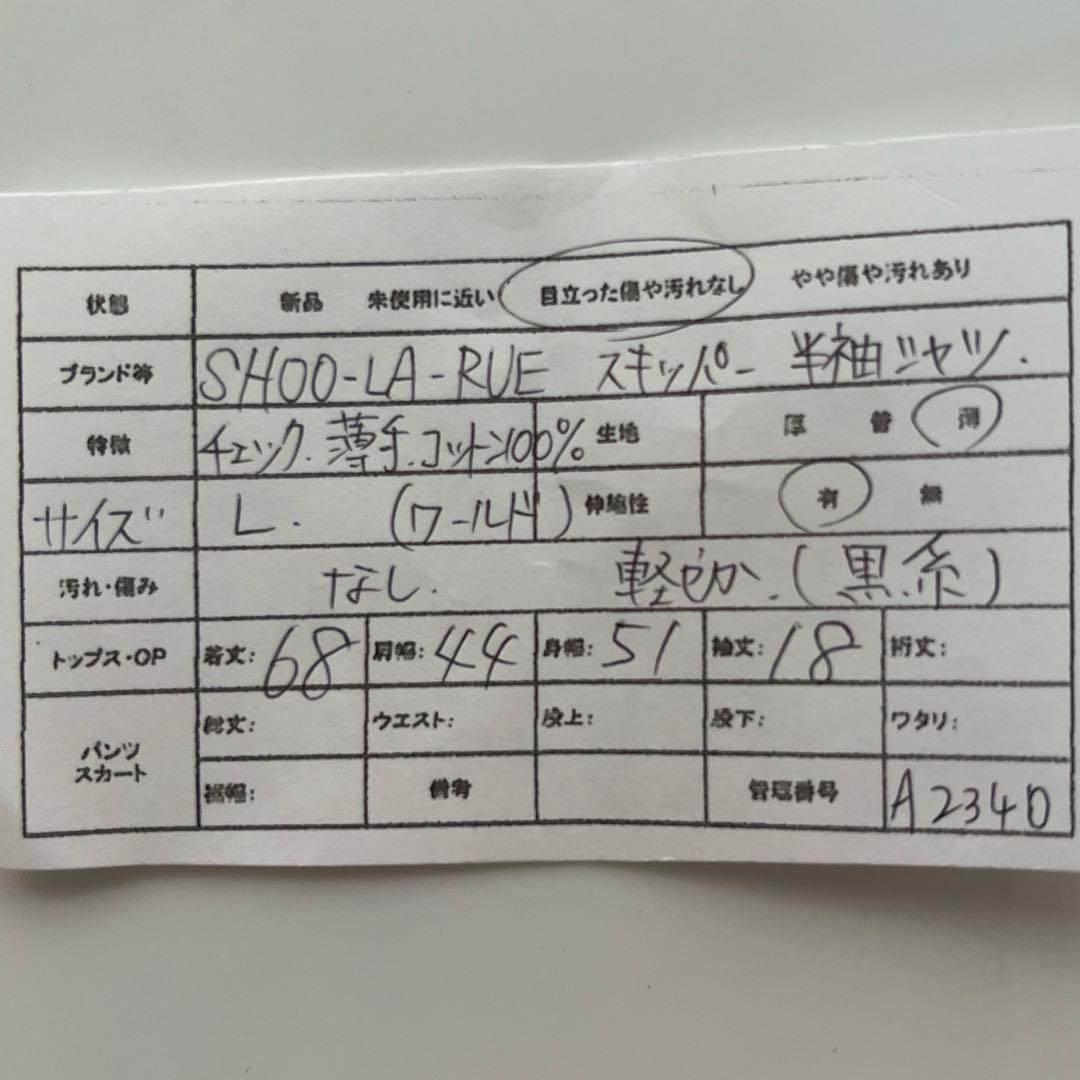 状態 新品 未使用に近い 目立った傷や汚れなし やや傷や汚れあり
ブランド等 SHOO-LA-RUE スキッパー 半袖シャツ.
特徴 チェック.薄手.コットン100% 生地 厚 普 薄
サイズ L. (ワールド) 伸縮性 有 無
汚れ・傷み なし. 軽やか.(黒.系)
トップス・OP 着丈: 68 肩幅: 44 身幅: 51 袖丈: 18 裄丈:
パンツ スカート 総丈: ウエスト: 股上: 股下: ワタリ:
裾幅: 備考 管理番号 A2340